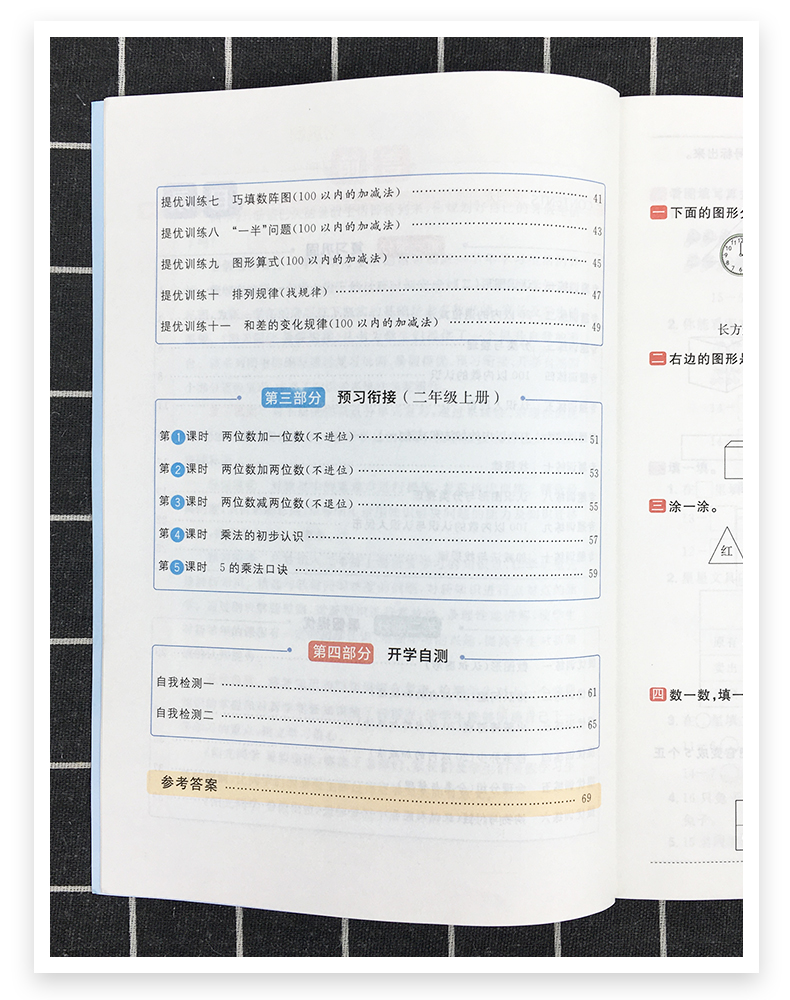 提优训练七 巧填数阵图(100以内的加减法) 41
提优训练八 “一半”问题(100以内的加减法) 43
提优训练九 图形算式(100以内的加减法) 45
提优训练十 排列规律(找规律) 47
提优训练十一 和差的变化规律(100以内的加减法) 49
第三部分 预习衔接(二年级上册)
第1课时 两位数加一位数(不进位) 51
第2课时 两位数加两位数(不进位) 53
第3课时 两位数减两位数(不退位) 55
第4课时 乘法的初步认识 57
第5课时 5的乘法口诀 59
第四部分 开学自测
自我检测一 61
自我检测二 65
参考答案 69
一 下面的图形
长方
二 右边的图形
三 涂一涂。
红
四 数一数,填一